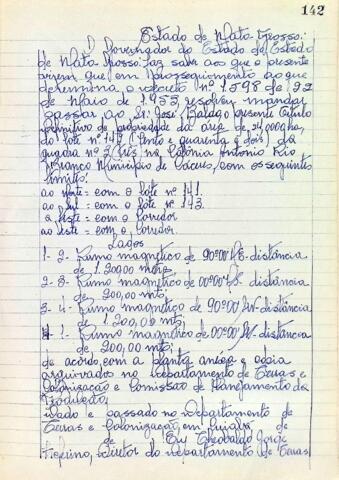 142
Estado de Mato Grosso:
O Governador do Estado do Estado
de Mato Grosso: faz saber aos que o presente
virem que em prosseguimento ao que
determina o decreto nº 1598 de 22
de Maio de 1953, resolveu mandar
passar ao Sr: José Balago presente titulo
definitivo de propriedade da área de 24,000 ha,
do lote nº 142 (cento e quarenta e dois) da
nº 3 (três na Colonia Antonio Rio
Branco Municipio de Cáceres, com os seguintes
limites:
ao norte = com o lote nº 141.
ao sul = com o lote nº 143.
à leste = com o corredor
ao leste = com o corredor.
Lados
1 - 2 - Rumo magnetico de 90º00' distância
de 1.200,00 metros
2 - 3 - Rumo magnetico de 00º00' distância
de 200,00 mts;
3 - 4 - Rumo magnetico de 90º00' distância
de 1.200,00 mts;
4 - 1 - Rumo magnetico de 00º00' distância
de 200,00 mts;
de acordo, com a planta anexa e copia
arquivado no Departamento de Terras e
Colonização e Comissão de Planejamento da
Produção.
Dado e passado no Departamento de
Terras e Colonização, em Cuiabá
de de Eu, Theobaldo Jorge
Diretor do Departamento de Terras